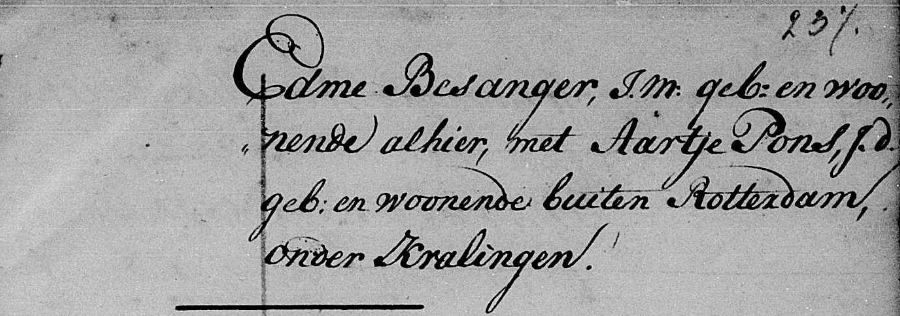 237.
Edme Besanger, J.m: geb: en woo„
„nende alhier, met Aartje Pons, J.d.
geb: en woonende buiten Rotterdam,
onder Kralingen.